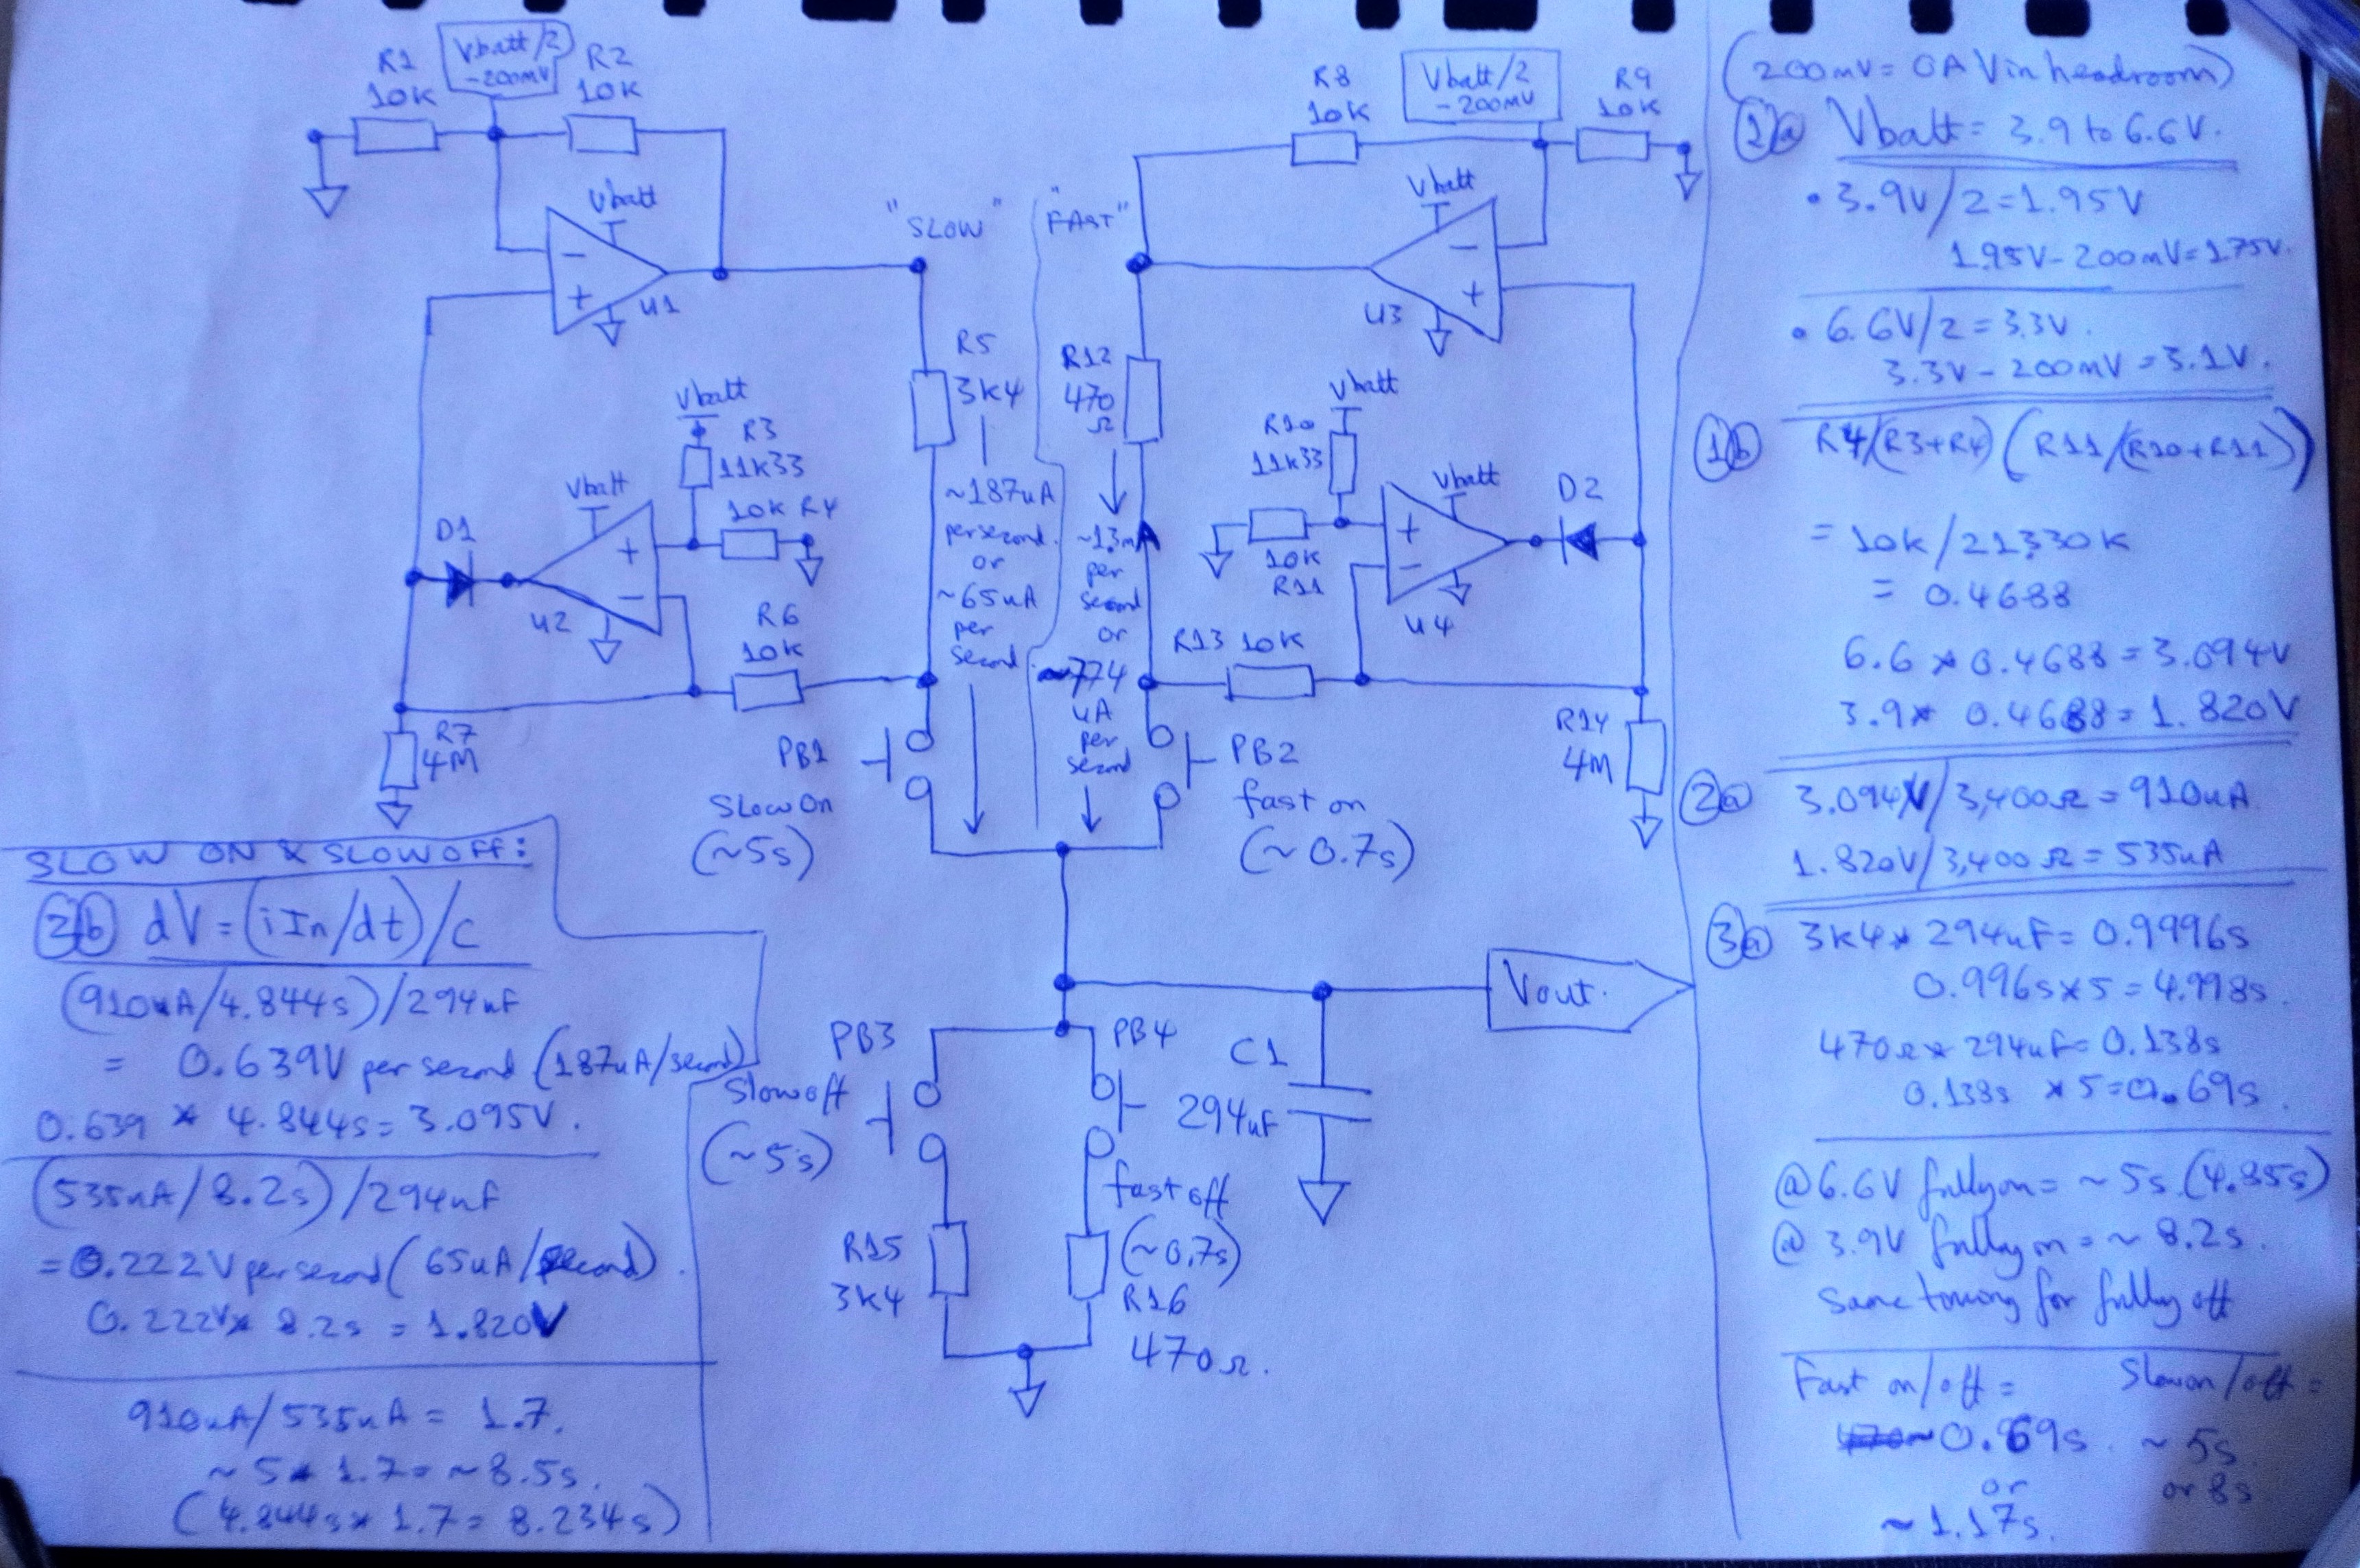 R1
10K
Vbatt/2
-200mV
R2
10K
Vbatt
-
+
U1
"SLOW"
R5
3K4
~187uA
per second.
or
~65uA
per
second.
Vbatt
R3
11K33
10K R4
Vbatt
+
-
U2
D1
R6
10K
R7
4M
PB1
Slow On
(~5s)
"FAST"
R8
10K
Vbatt/2
-200mV
R9
10K
Vbatt
-
+
U3
R12
470
Ω
~1.3mA
per
second
or
~774
uA
per
second
Vbatt
R10
11K33
10K
R11
Vbatt
+
-
U4
D2
R13 10K
R14
4M
PB2
fast on
(~0.7s)
Vout.
PB3
Slow off
(~5s)
PB4
fast off
(~0.7s)
C1
294uF
R15
3K4
R16
470Ω.
SLOW ON & SLOW OFF:
2b dV=(iIn/dt)/C
(910uA/4.844s)/294uF
= 0.639V per second (187uA/second)
0.639 * 4.844s = 3.095V.
(535uA/8.2s)/294uF
=0.222V per second (65uA/second).
0.222V* 8.2s = 1.820V
910uA/535uA = 1.7.
~5* 1.7= ~8.5s.
(4.844s* 1.7= 8.234s)
(200mV= OA Vin headroom)
1a Vbatt= 3.9 to 6.6V.
• 3.9V/2=1.95V
1.95V-200mV=1.75V.
• 6.6V/2=3.3V.
3.3V-200mV=3.1V.
1b R4/(R3+R4) (R11/(R10+R11))
= 10K/21330K
= 0.4688
6.6 * 0.4688= 3.094V
3.9* 0.4688= 1.820V
2a 3.094V/3,400Ω=910uA
1.820V/3,400Ω=535uA
3a 3K4* 294uF= 0.9996s
0.996s*5=4.998s.
470Ω* 294uF=0.138s
0.138s *5=0.69s.
@6.6V fully on= ~5s.(4.85s)
@ 3.9V fully on= ~8.2s.
Same timing for fully off
Fast on/off = Slow on/off =
~0.69s. ~5s
or or 8s
~1.17s.